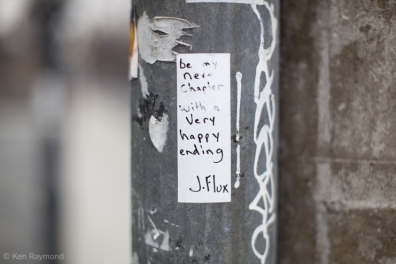 be my
new
chapter
with a
very
happy
ending
J.Flux
© Ken Raymond